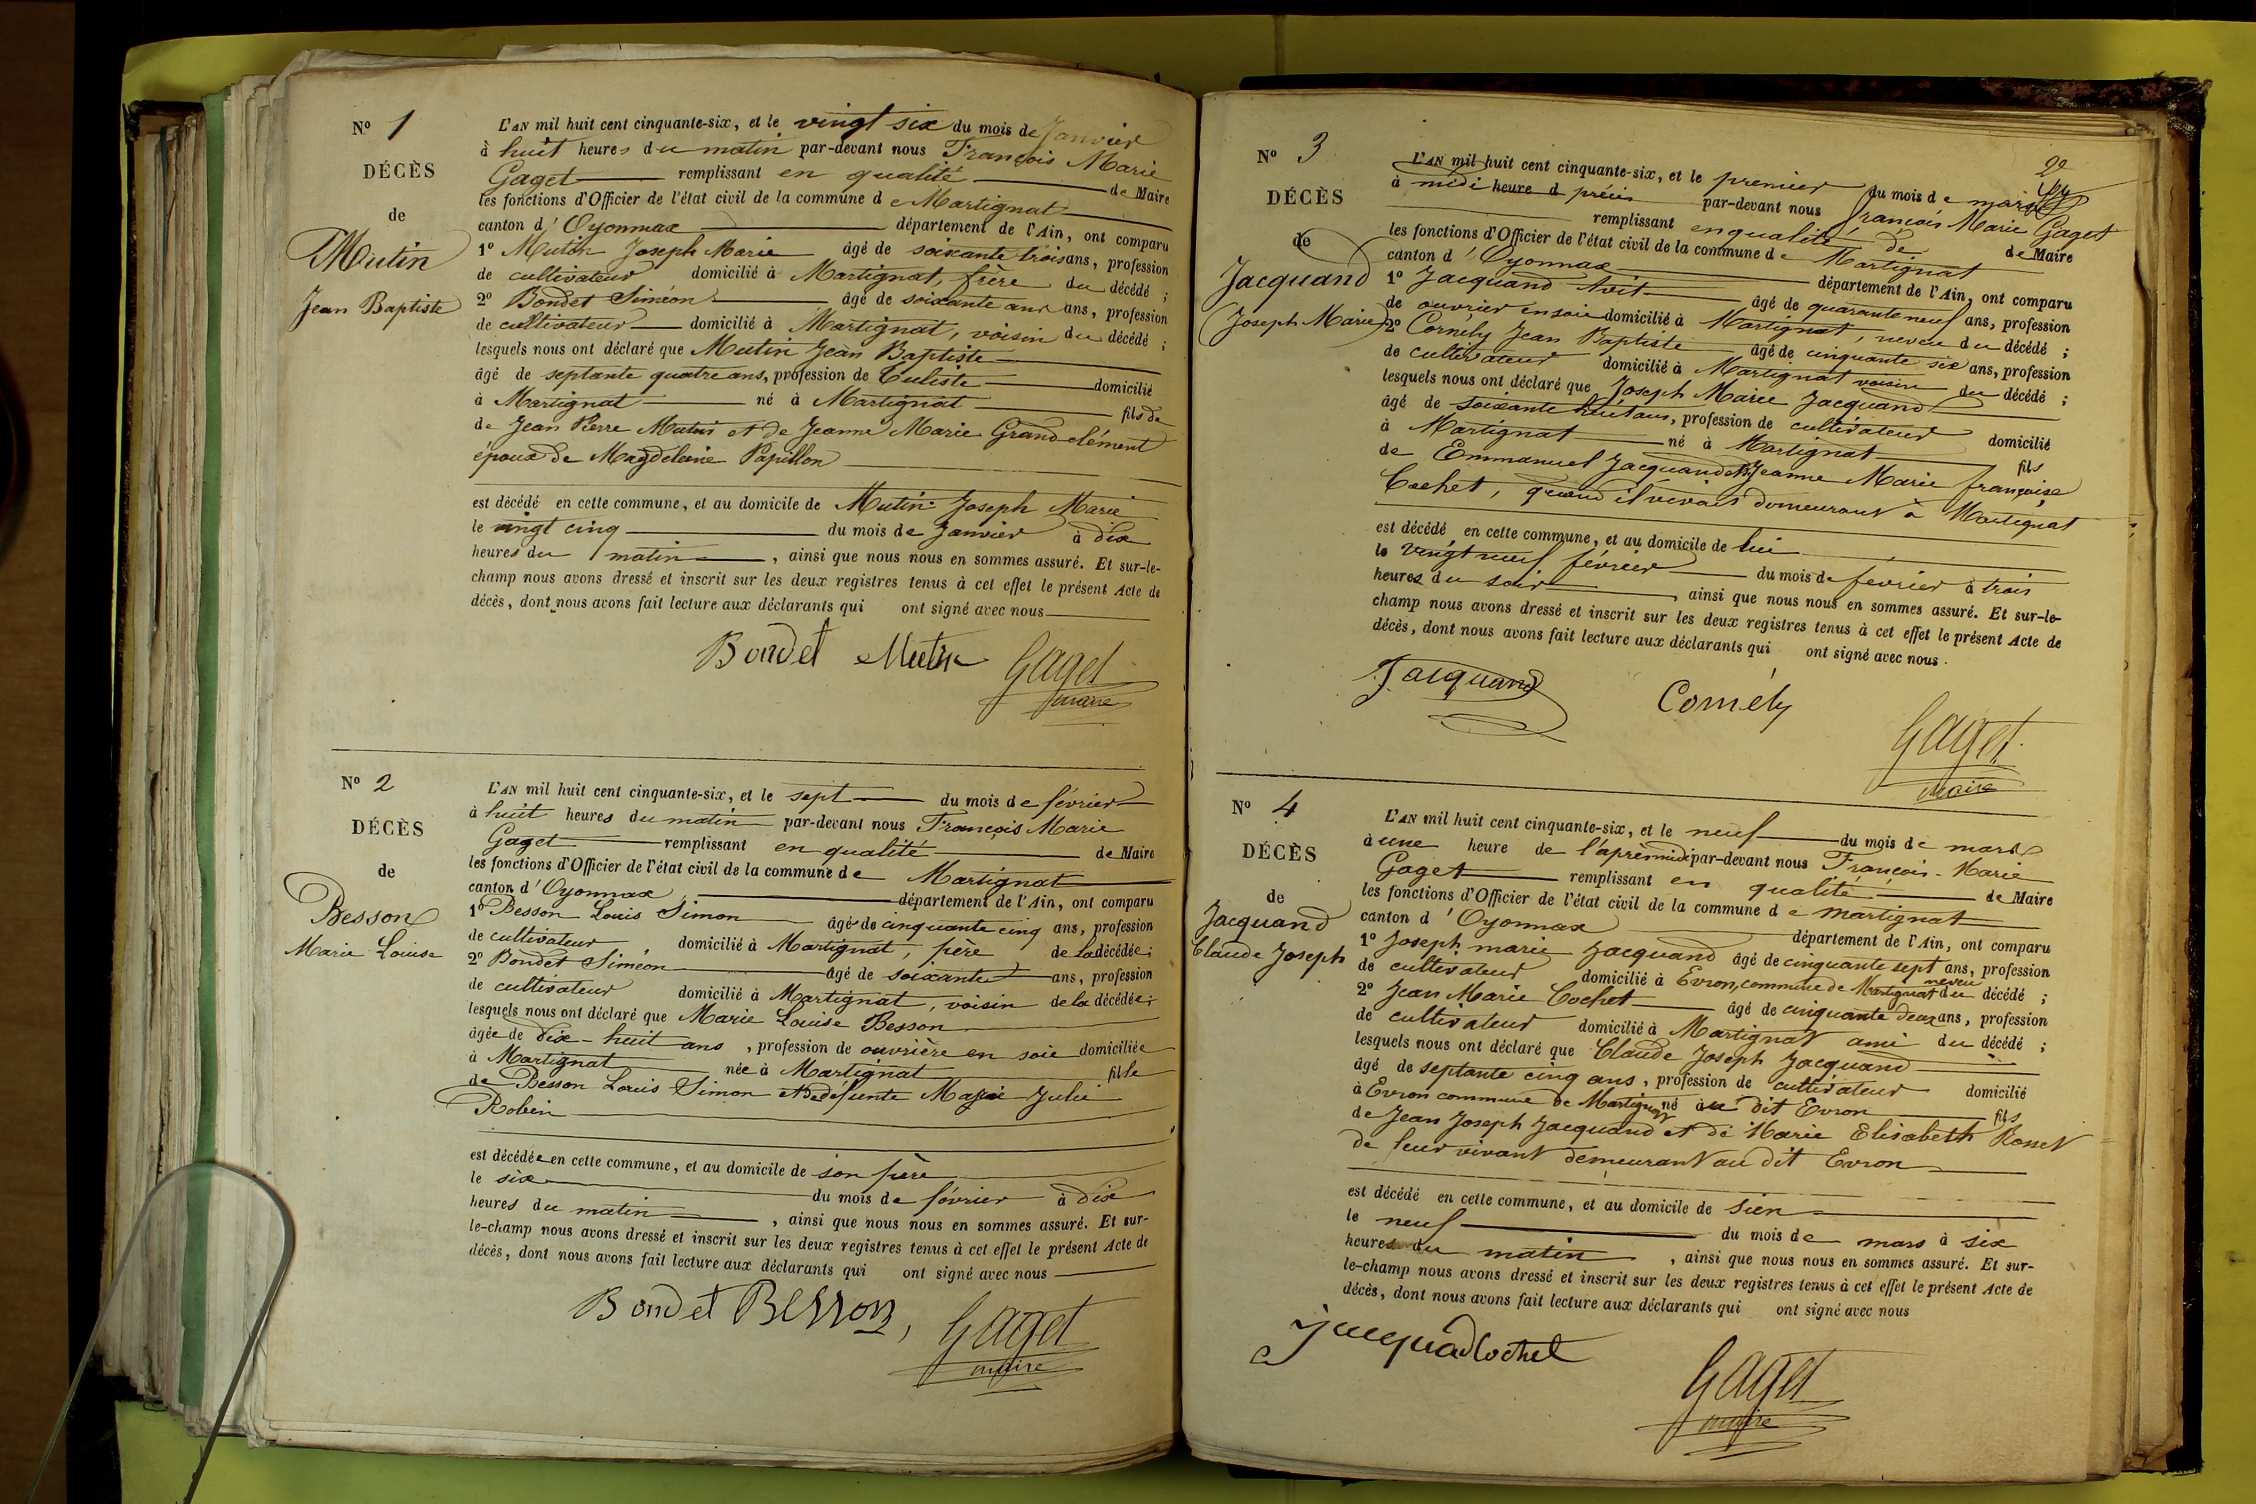 Nº 1
DÉCÈS
de
Mutin
Jean Baptiste
L'AN mil huit cent cinquante-six, et le vingt six du mois de Janvier
à huit heures du matin par-devant nous François Marie
Gaget remplissant en qualité de Maire
les fonctions d'Officier de l'état civil de la commune de Martignat
canton d'Oyonnax département de l'Ain, ont comparu
1º Mutin Joseph Marie âgé de soixante trois ans, profession
de cultivateur domicilié à Martignat, frère du décédé ;
2º Bondet Siméon âgé de soixante ans ans, profession
de cultivateur domicilié à Martignat, voisin du décédé ;
lesquels nous ont déclaré que Mutin Jean Baptiste
âgé de septante quatre ans, profession de domicilié
à Martignat né à Martignat fils de
de Jean Pierre Mutin et de Jeanne Marie Grandclément
époux de Magdeleine Papillon
est décédé en cette commune, et au domicile de Mutin Joseph Marie
le vingt cinq du mois de Janvier à dix
heures du matin, ainsi que nous nous en sommes assuré. Et sur-le-
champ nous avons dressé et inscrit sur les deux registres tenus à cet effet le présent Acte de
décès, dont nous avons fait lecture aux déclarants qui ont signé avec nous
Bondet Mutin Gaget
maire
Nº 2
DÉCÈS
de
Besson
Marie Louise
L'AN mil huit cent cinquante-six, et le sept du mois de février
à huit heures du matin par-devant nous François Marie
Gaget remplissant en qualité de Maire
les fonctions d'Officier de l'état civil de la commune de Martignat
canton d'Oyonnax département de l'Ain, ont comparu
1º Besson Louis Simon âgé de cinquante cinq ans, profession
de cultivateur, domicilié à Martignat, père de la décédée ;
2º Bondet Siméon âgé de soixante ans, profession
de cultivateur domicilié à Martignat, voisin de la décédée ;
lesquels nous ont déclaré que Marie Louise Besson
âgée de dix-huit ans, profession de ouvrière en soie domiciliée
à Martignat née à Martignat fille
de Besson Louis Simon et de défunte Marie Julie
Robin
est décédée en cette commune, et au domicile de son père
le six du mois de février à dix
heures du matin, ainsi que nous nous en sommes assuré. Et sur-
le-champ nous avons dressé et inscrit sur les deux registres tenus à cet effet le présent Acte de
décès, dont nous avons fait lecture aux déclarants qui ont signé avec nous
Bondet Besson, Gaget
maire
2
Nº 3
DÉCÈS
de
Jacquand
(Joseph Marie)
L'AN mil huit cent cinquante-six, et le premier du mois de mars
à midi heure d précis par-devant nous François Marie Gaget
remplissant en qualité de de Maire
les fonctions d'Officier de l'état civil de la commune de Martignat
canton d'Oyonnax département de l'Ain, ont comparu
1º Jacquand Avit âgé de quarante neuf ans, profession
de ouvrier en soie domicilié à Martignat, neveu du décédé ;
2º Cornély Jean Baptiste âgé de cinquante six ans, profession
de cultivateur domicilié à Martignat voisin du décédé ;
lesquels nous ont déclaré que Joseph Marie Jacquand
âgé de soixante huit ans, profession de cultivateur domicilié
à Martignat né à Martignat fils
de Emmanuel Jacquand et de Jeanne Marie françoise
Cochet, quand il vivait demeurant à Martignat
est décédé en cette commune, et au domicile de lui
le vingt neuf février du mois de février à trois
heures du soir, ainsi que nous nous en sommes assuré. Et sur-le-
champ nous avons dressé et inscrit sur les deux registres tenus à cet effet le présent Acte de
décès, dont nous avons fait lecture aux déclarants qui ont signé avec nous.
Jacquand Cornély Gaget
Maire
Nº 4
DÉCÈS
de
Jacquand
Claude Joseph
L'AN mil huit cent cinquante-six, et le neuf du mois de mars
à une heure de l'après midi par-devant nous François-Marie
Gaget remplissant en qualité de Maire
les fonctions d'Officier de l'état civil de la commune de martignat
canton d'Oyonnax département de l'Ain, ont comparu
1º Joseph marie Jacquand âgé de cinquante sept ans, profession
de cultivateur domicilié à Evron, commune de Martignat neveu du décédé ;
2º Jean Marie Cochet âgé de cinquante deux ans, profession
de cultivateur domicilié à Martignat ami du décédé ;
lesquels nous ont déclaré que Claude Joseph Jacquand
âgé de septante cinq ans, profession de cultivateur domicilié
à Evron commune de Martignat né au dit Evron fils
de Jean Joseph Jacquand et de Marie Elisabeth
de leur vivant demeurant au dit Evron
est décédé en cette commune, et au domicile de sien
le neuf du mois de mars à six
heures du matin, ainsi que nous nous en sommes assuré. Et sur-
le-champ nous avons dressé et inscrit sur les deux registres tenus à cet effet le présent Acte de
décès, dont nous avons fait lecture aux déclarants qui ont signé avec nous
Jacquand Cochet Gaget
maire